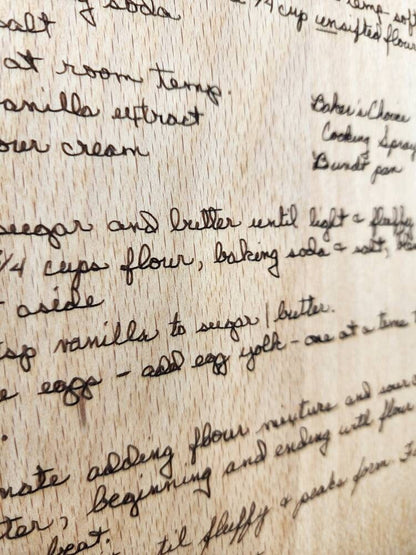 soda
1/4 cup unsifted flour
salt
temp. soft
at room temp.
vanilla extract
our cream
Baker's Choice
Cooking Spray
Bundt pan
sugar and butter until light & fluffy
1/4 cups flour, baking soda & salt,
aside
tsp vanilla to sugar/butter.
eggs - add egg yolk - one at a time
nate adding flour mixture and sour
tter, beginning and ending with flour
beat.
til fluffy & peaks form